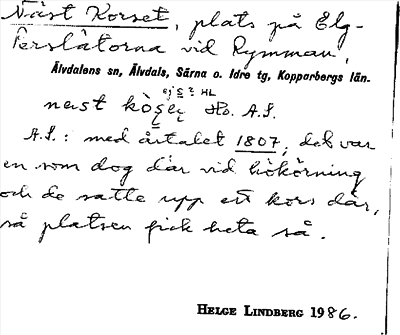 Näst Korset, plats på Elg-
Perslåtorna vid Rymman,
Älvdalens sn, Älvdals, Särna o. Idre tg, Kopparbergs län.
ej s ? HL
næst
Hb. A.S.
A.S.: med årtalet 1807, det var
en som dog där vid hökörning
och de satte upp ett kors där,
så platsen fick heta så.
HELGE LINDBERG 1986.